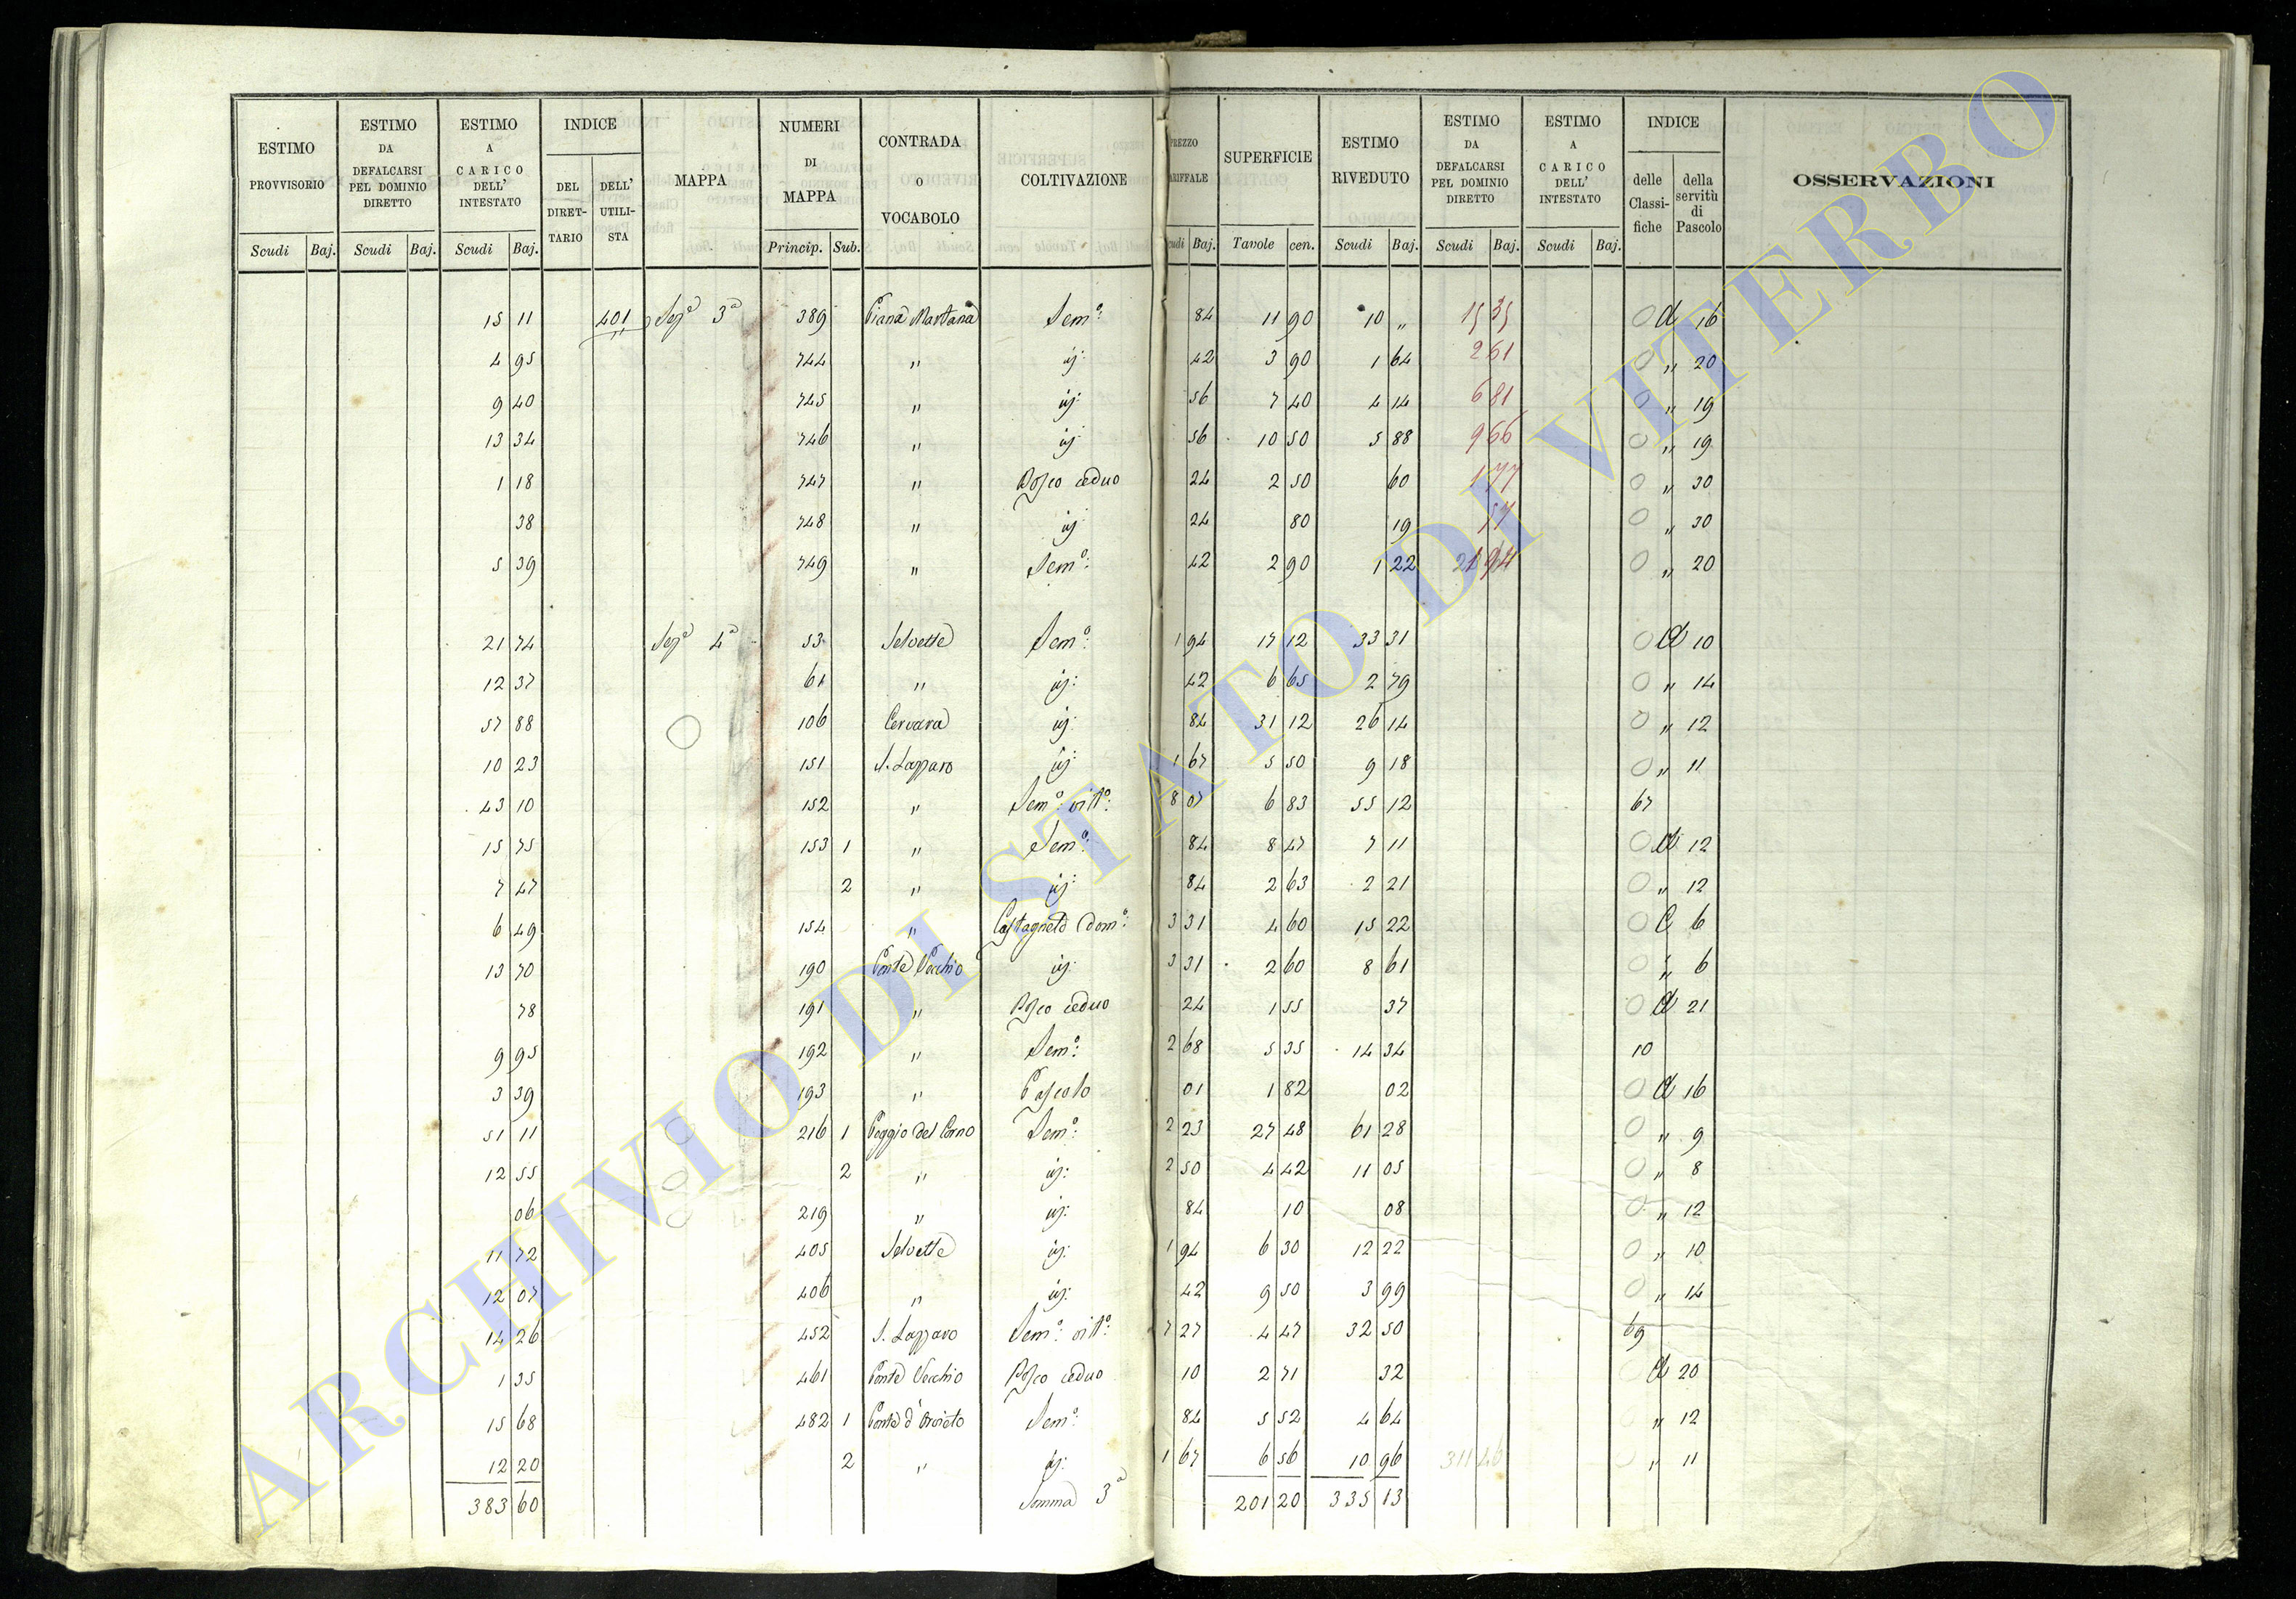 ESTIMO PROVVISORIO | ESTIMO DA DEFALCARSI PEL DOMINIO DIRETTO | ESTIMO A CARICO DELL' INTESTATO | INDICE | MAPPA | NUMERI DI MAPPA | CONTRADA O VOCABOLO | COLTIVAZIONE | PREZZO TARIFFALE | SUPERFICIE | ESTIMO RIVEDUTO | ESTIMO DA DEFALCARSI PEL DOMINIO DIRETTO | ESTIMO A CARICO DELL' INTESTATO | INDICE | OSSERVAZIONI
DEL DIRETTARIO | DELL' UTILISTA | delle Classifiche | della servitù di Pascolo
Scudi Baj. | Scudi Baj. | Scudi Baj. | Princip. Sub. | Scudi Baj. | Tavole cen. | Scudi Baj. | Scudi Baj. | Scudi Baj.
15 11 | 401 | Sez.e 3a | 389 | Piana Martana | Sem.o | 84 | 11 90 | 10 " | 15 35 | O d 16
4 95 | 744 | " | id: | 42 | 3 90 | 1 64 | 2 61 | O " 20
9 40 | 745 | " | id: | 56 | 7 40 | 4 14 | 6 81 | O " 19
13 34 | 746 | " | id: | 56 | 10 50 | 5 88 | 9 66 | O " 19
1 18 | 747 | " | Bosco ceduo | 24 | 2 50 | 60 | 1 77 | O " 30
38 | 748 | " | id | 24 | 80 | 19 | 57 | O " 30
5 39 | 749 | " | Sem.o | 42 | 2 90 | 1 22 | O " 20
21 74 | Sez.e 4a | 53 | Selvette | Sem.o | 1 94 | 17 12 | 33 31 | O d 10
12 37 | 61 | " | id: | 42 | 6 65 | 2 79 | O " 14
57 88 | 106 | Cervara | id: | 84 | 31 12 | 26 14 | O " 12
10 23 | 151 | S. Lazzaro | id: | 1 67 | 5 50 | 9 18 | O " 11
43 10 | 152 | " | Sem.o vit.o | 8 07 | 6 83 | 55 12 | 67
15 75 | 153 1 | " | Sem.o | 84 | 8 47 | 7 11 | O d 12
7 47 | 2 | " | id: | 84 | 2 63 | 2 21 | O " 12
6 49 | 154 | " | Castagneto dom.o | 3 31 | 4 60 | 15 22 | O C 6
13 70 | 190 | Ponte Vecchio | id: | 3 31 | 2 60 | 8 61 | O " 6
78 | 191 | " | Bosco ceduo | 24 | 1 55 | 37 | O d 21
9 95 | 192 | " | Sem.o | 2 68 | 5 35 | 14 34 | 10
3 39 | 193 | " | Pascolo | 01 | 1 82 | 02 | O d 16
51 11 | 216 1 | Poggio del Corno | Sem.o | 2 23 | 27 48 | 61 28 | O " 9
12 55 | 2 | " | id: | 2 50 | 4 42 | 11 05 | O " 8
06 | 219 | " | id: | 84 | 10 | 08 | O " 12
11 72 | 405 | Selvette | id: | 1 94 | 6 30 | 12 22 | O " 10
12 07 | 406 | " | id: | 42 | 9 50 | 3 99 | O " 14
14 26 | 452 | S. Lazzaro | Sem.o vit.o | 7 27 | 4 47 | 32 50 | 69
1 35 | 461 | Ponte Vecchio | Bosco ceduo | 10 | 2 71 | 32 | d 20
15 68 | 482 1 | Ponte d'Orvieto | Sem.o | 84 | 5 52 | 4 64 | " 12
12 20 | 2 | " | id: | 1 67 | 6 56 | 10 96 | 311 26 | " 11
383 60 | Somma 3a | 201 20 | 335 13
ARCHIVIO DI STATO DI VITERBO